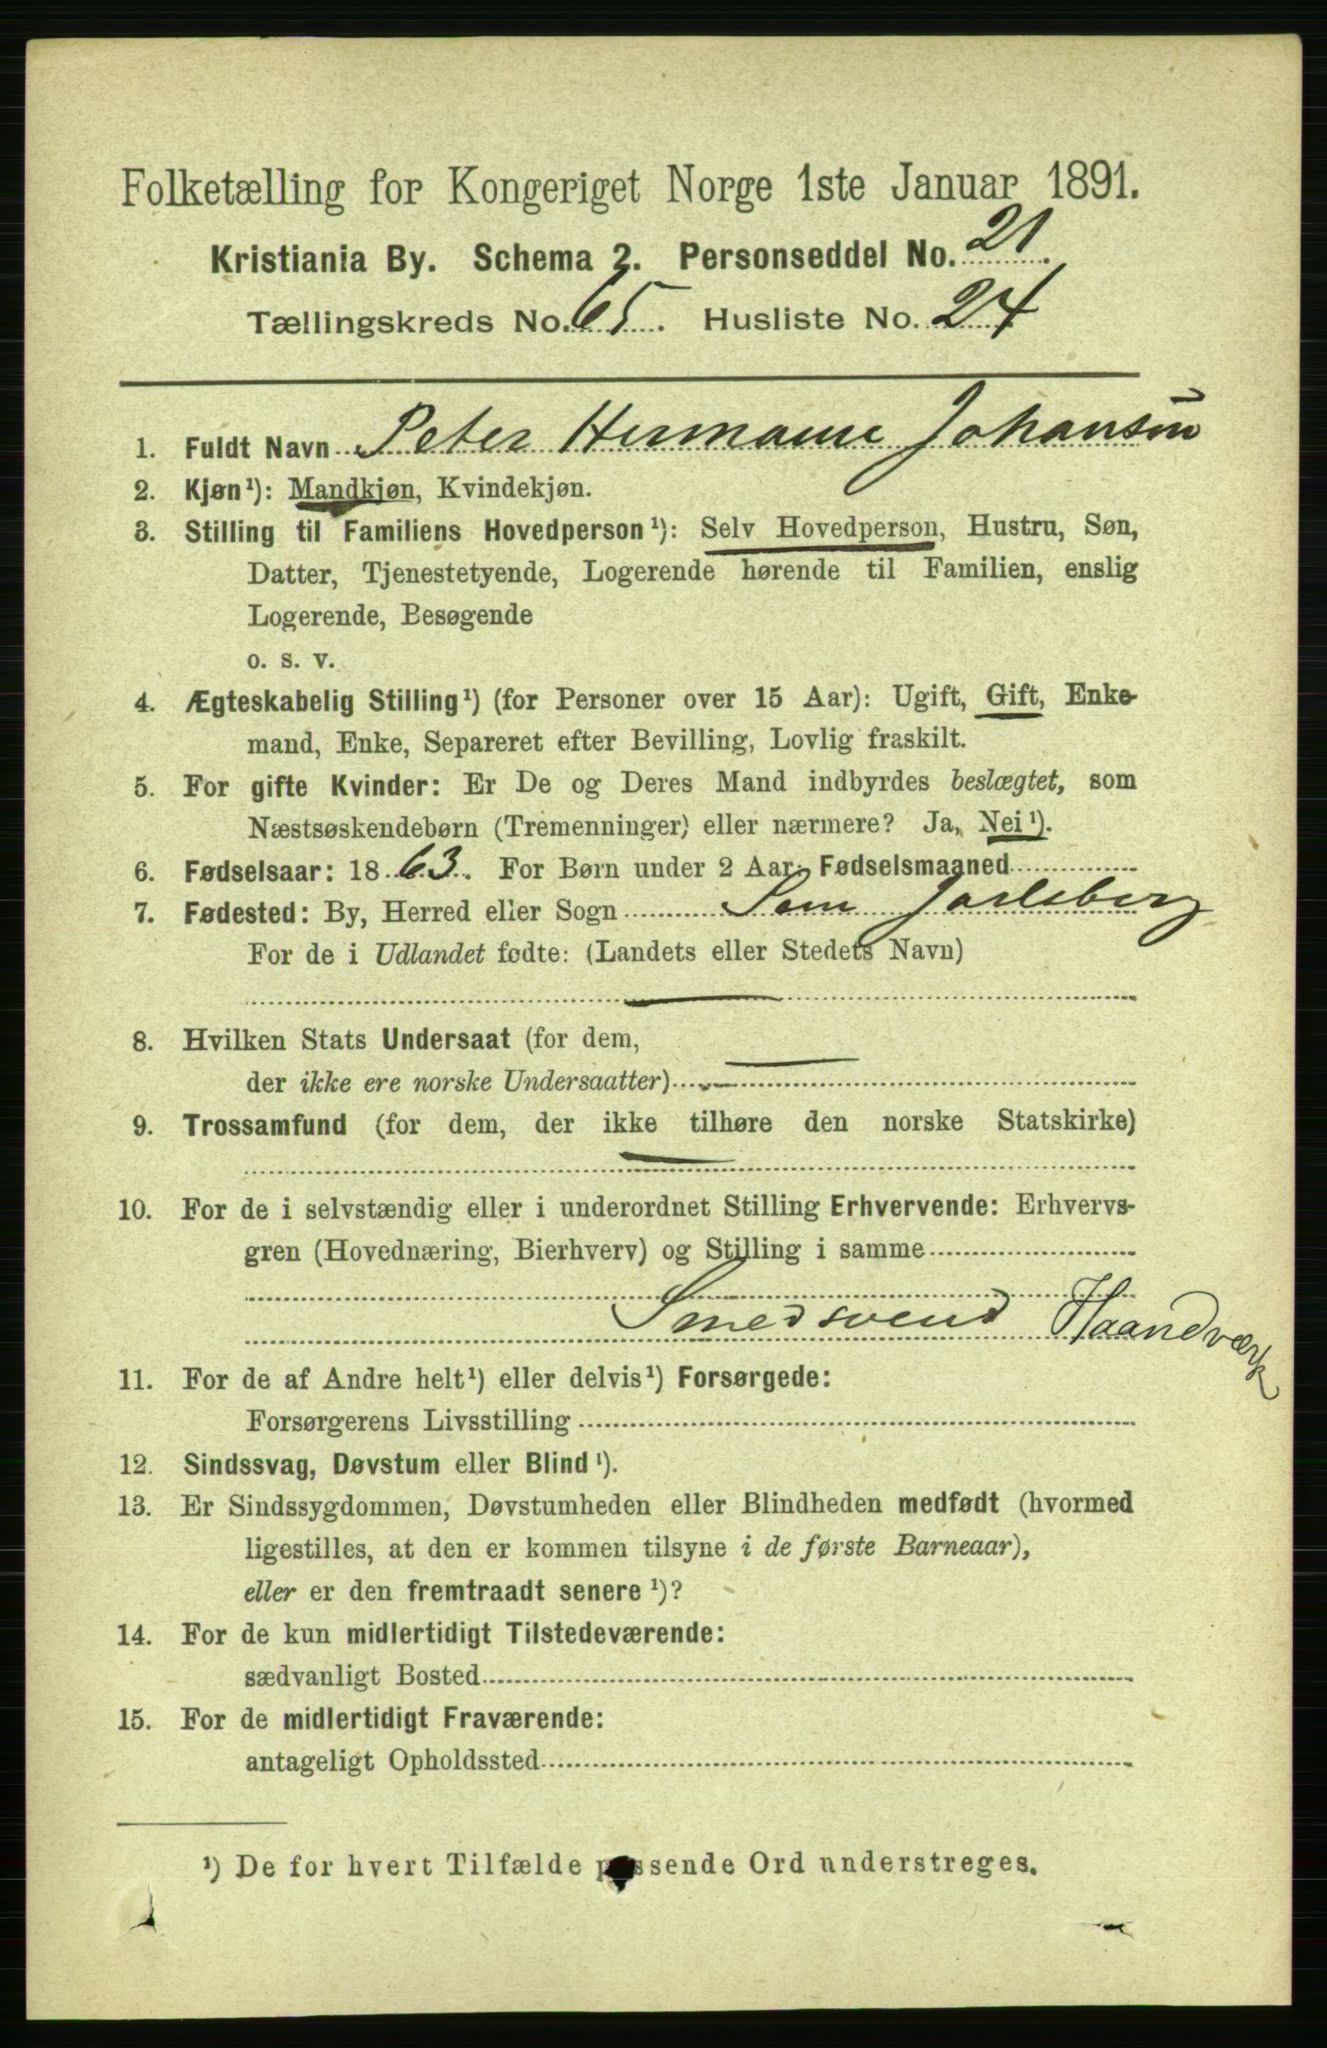 Folketælling for Kongeriget Norge 1ste Januar 1891.
Kristiania By. Schema 2. Personseddel No. 21.
Tællingskreds No. 65. Husliste No. 24.
1. Fuldt Navn Peter Hermann Johansen
2. Kjøn¹): Mandkjøn, Kvindekjøn.
3. Stilling til Familiens Hovedperson¹): Selv Hovedperson, Hustru, Søn,
Datter, Tjenestetyende, Logerende hørende til Familien, enslig
Logerende, Besøgende
o. s. v.
4. Ægteskabelig Stilling¹) (for Personer over 15 Aar): Ugift, Gift, Enke-
mand, Enke, Separeret efter Bevilling, Lovlig fraskilt.
5. For gifte Kvinder: Er De og Deres Mand indbyrdes beslægtet, som
Næstsøskendebørn (Tremenninger) eller nærmere? Ja, Nei¹).
6. Fødselsaar: 1863. For Børn under 2 Aar: Fødselsmaaned
7. Fødested: By, Herred eller Sogn Sem Jarlsberg
For de i Udlandet fødte: (Landets eller Stedets Navn)
8. Hvilken Stats Undersaat (for dem,
der ikke ere norske Undersaatter)
9. Trossamfund (for dem, der ikke tilhøre den norske Statskirke)
10. For de i selvstændig eller i underordnet Stilling Erhvervende: Erhvervs-
gren (Hovednæring, Bierhverv) og Stilling i samme
Smedsvend Haandværk
11. For de af Andre helt¹) eller delvis¹) Forsørgede:
Forsørgerens Livsstilling
12. Sindssvag, Døvstum eller Blind¹).
13. Er Sindssygdommen, Døvstumheden eller Blindheden medfødt (hvormed
ligestilles, at den er kommen tilsyne i de første Barneaar),
eller er den fremtraadt senere¹)?
14. For de kun midlertidigt Tilstedeværende:
sædvanligt Bosted
15. For de midlertidigt Fraværende:
antageligt Opholdssted
¹) De for hvert Tilfælde passende Ord understreges.